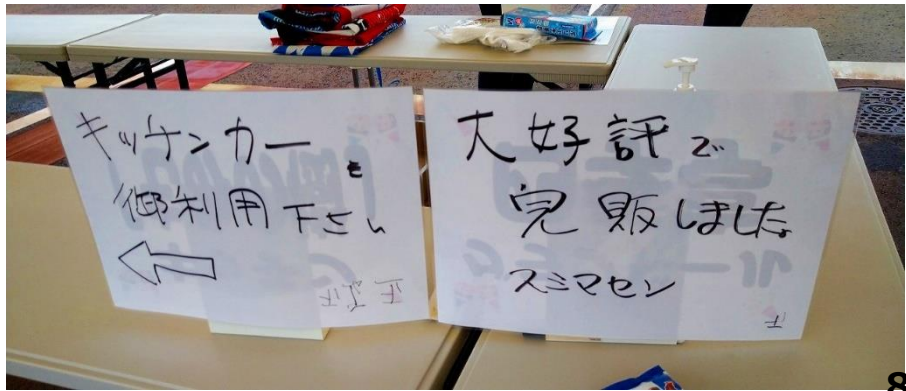 キッチンカーを
御利用下さい
大好評で
完販しました
スミマセン